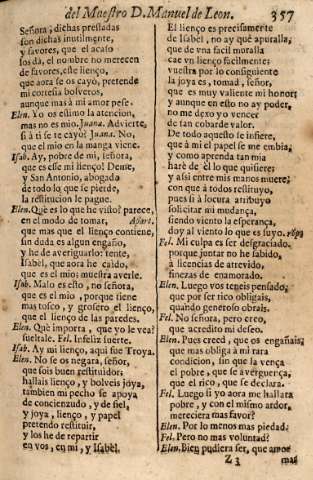 del Maestro D. Manuel de Leon. 357
Señora, dichas prestadas
son dichas inutilmente,
y favores, que el acaso
los dà, el nombre no merecen
de favores, este lienço,
que aora se os cayo, pretende
mi cortesia bolveros,
aunque mas à mi amor pese.
Elen. Yo os estimo la atencion,
mas no es mio, Juana. Advierte,
si à ti se te cayò? Juana. No,
que el mio en la manga viene.
Isab. Ay, pobre de mi, señora,
que es esse mi lienço! Deme,
y San Antonio, abogada
de todo lo que se pierde,
la restitucion le pague.
Elen. Què es lo que he visto? parece,
en el modo de tomar, Apart.
que mas que el lienço contiene,
sin duda es algun engaño,
y he de averiguarlo: tente,
Isabel, que aora he caido,
que es el mio: muestra averle.
Isab. Malo es esto, no señora,
que es el mio, porque tiene
mas tosco, y grosero el lienço,
que el lienço de las paredes.
Elen. Què importa, que yo le vea?
sueltale. Fel. Infeliz suerte.
Isab. Ay mi lienço, aqui fue Troya.
Elen. No se os negara, señor,
que sois buen restituidor:
hallais lienço, y bolveis joya,
tambien mi pecho se apoya
de concienzudo, y de fiel,
y joya, lienço, y papel
pretendo restituir,
y los he de repartir
en vos, en mi, y Isabel.
El lienço es precisamente
de Isabel, no ay que apuralla,
que de vna facil moralla
cae vn lienço facilmente:
vuestra por lo consiguiente
la joya es, tomad, señor,
que es muy valiente mi honor
y aunque en esto no ay poder,
no me dexo yo vencer
de tan cobarde valor.
De todo aquesto se infiere,
que à mi el papel se me embia,
y como aprenda tan mia
harè de èl lo que quisiere;
y assi entre mis manos muere,
con que à todos restituyo,
pues si à locura atribuyo
solicitar mi mudança,
siendo viento la esperança,
doy al viento lo que es suyo.
Fel. Mi culpa es ser desgraciado,
porque juntar no he sabido,
à licencias de atrevido,
finezas de enamorado.
Elen. Luego vos teneis pensado,
que por ser rico obligais,
quando generoso obrais.
Fel. No señora, pero creo,
que acredito mi deseo.
Elen. Pues creed, que os engañais,
que mas obliga à mi rara
condicion, sin que la vença
el pobre, que se averguença,
que el rico, que se declara.
Fel. Luego si yo aora me hallara
pobre, y con el mismo ardor,
mereciera mas favor?
Elen. Por lo menos mas piedad.
Fel. Pero no mas voluntad?
Elen. Bien pudiera ser, que amor
Z 3 mas